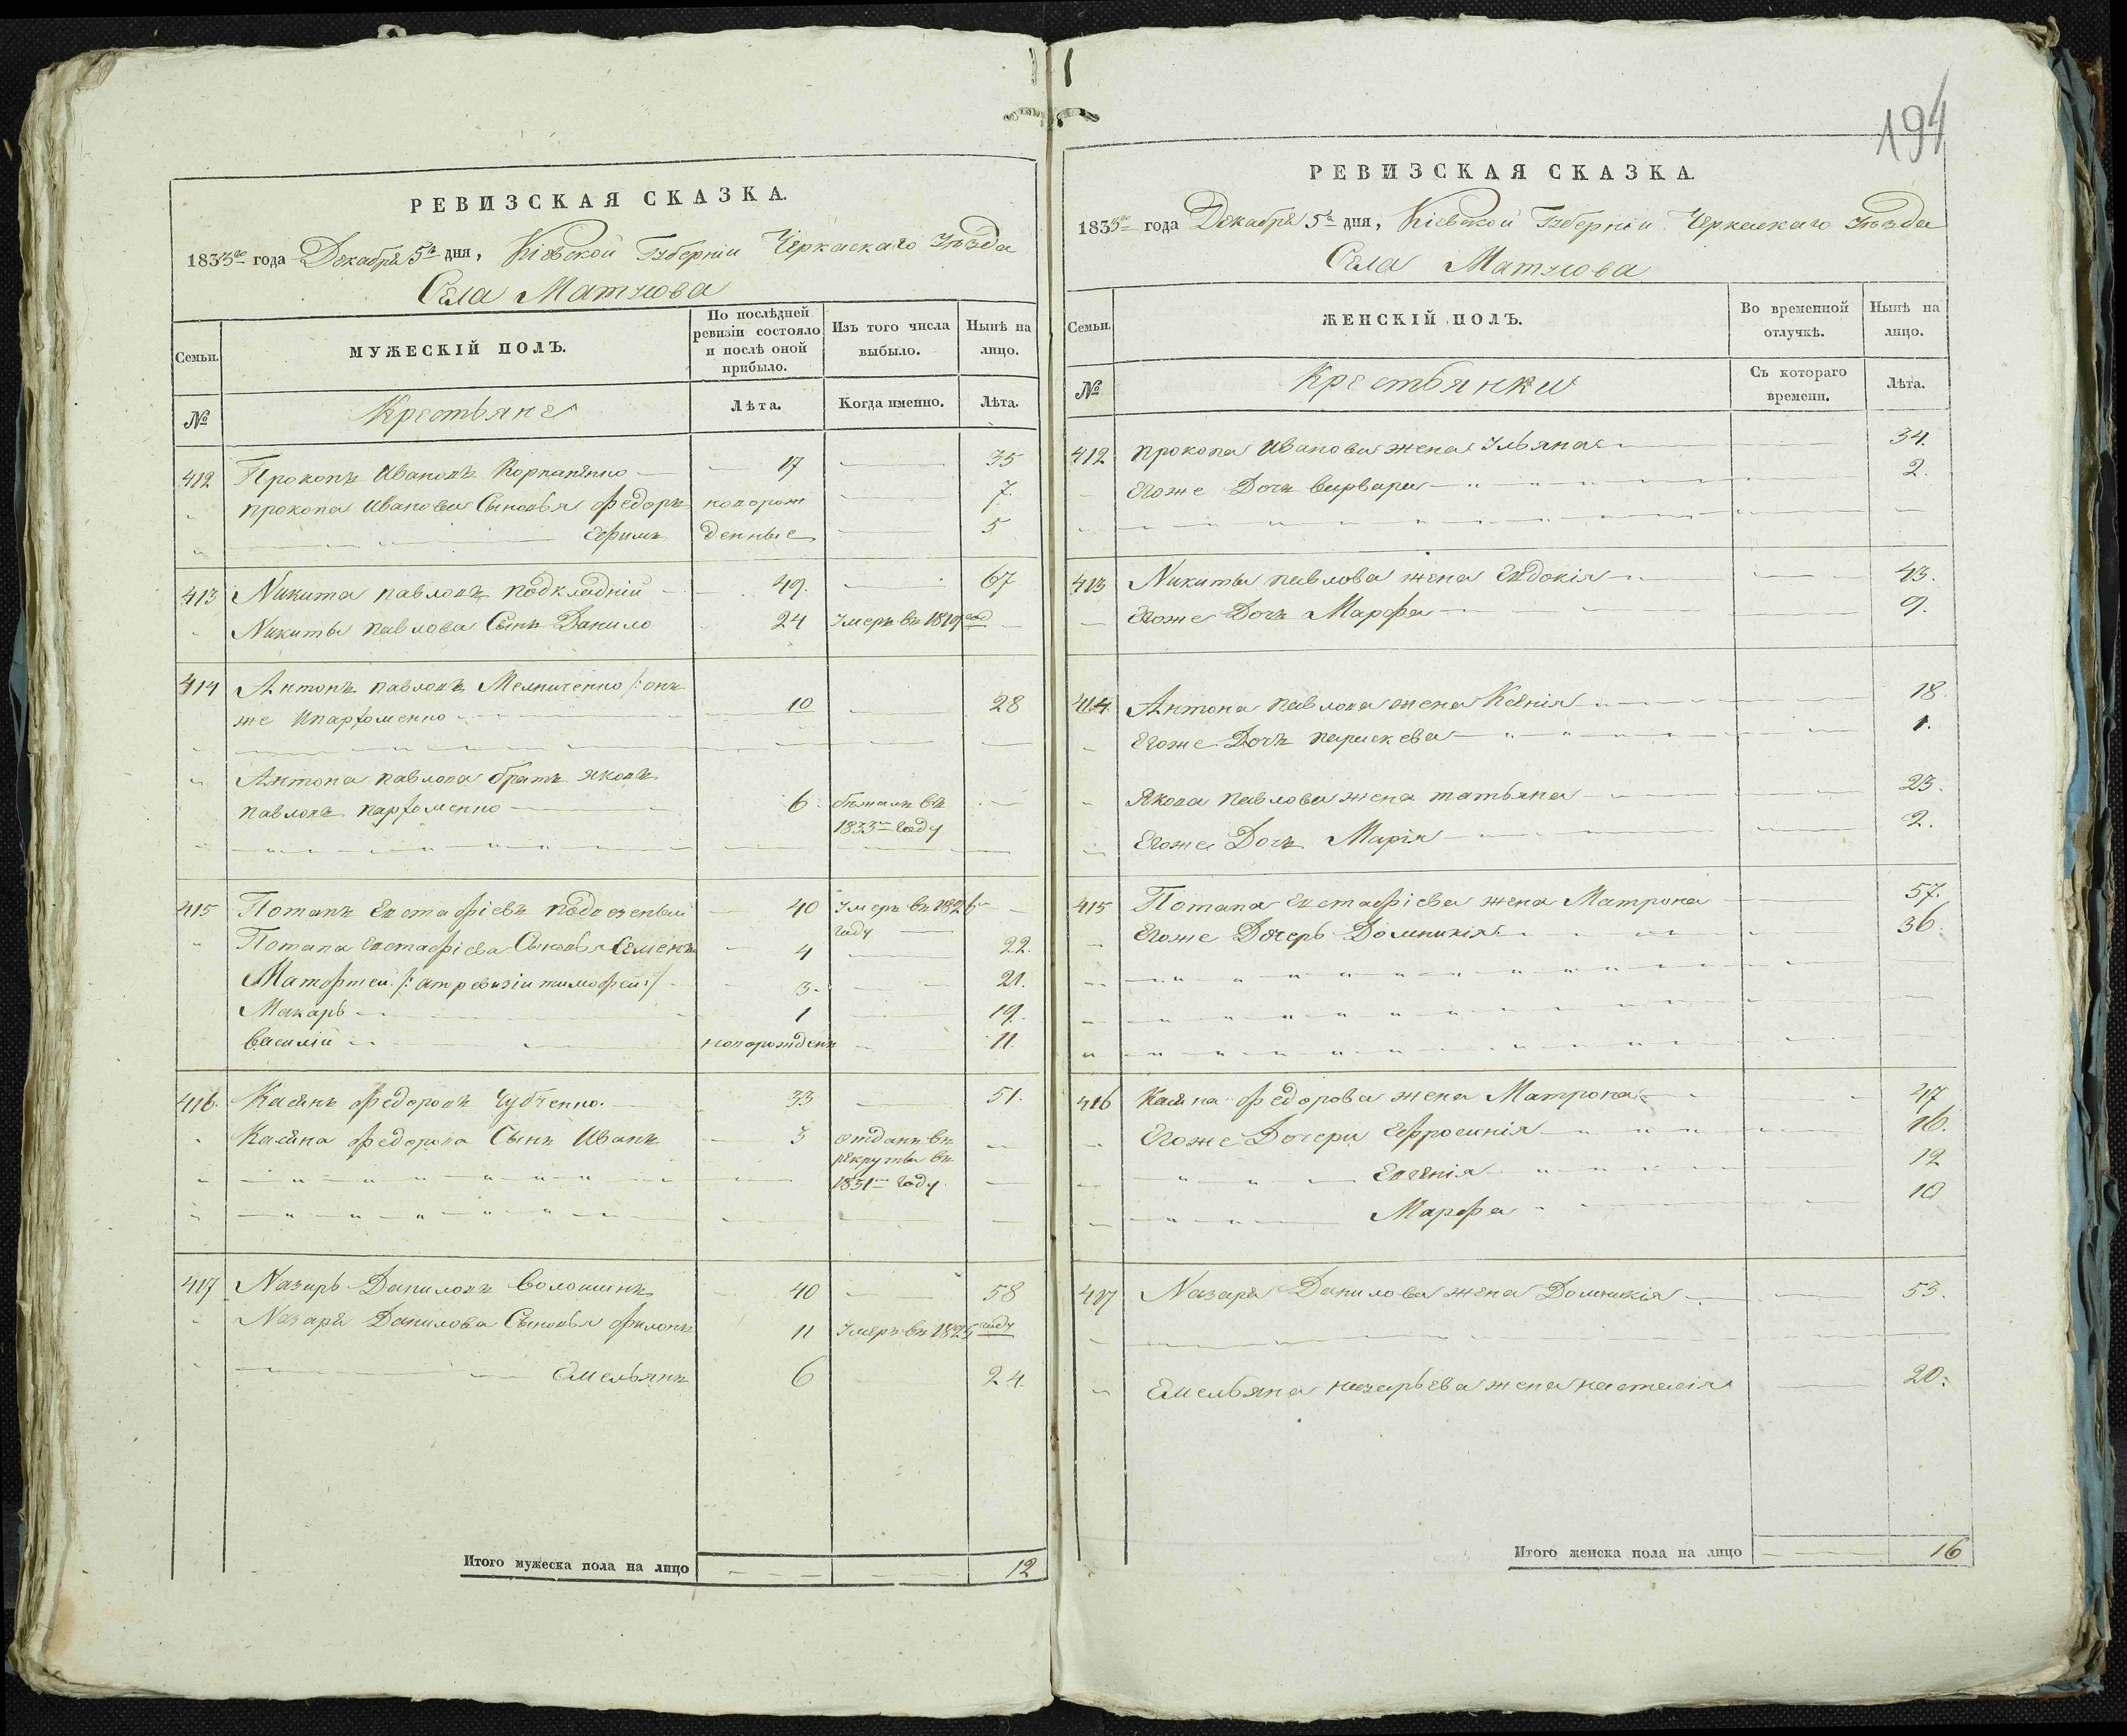 РЕВИЗСКАЯ СКАЗКА.
1833го года Декабря 5го дня, Кіевской Губерніи Черкаскаго Уѣзда
Села Матусова
Семьи.
МУЖЕСКІЙ ПОЛЪ.
По послѣдней ревизіи состояло и послѣ оной прибыло.
Изъ того числа выбыло.
Нынѣ на лицо.
№
Крестьяне
Лѣта.
Когда именно.
Лѣта.
412 Прокопъ Ивановъ 17 35
Прокопа Иванова Сыновья Федоръ новорож 7.
Ефимъ денные 5
413 Никита павловъ подкладній 49. 67
Никиты павлова Сынъ Данило 24 Умеръ въ 1819 год
414 Антонъ павловъ Мелниченко /: онъ
же Ипарфоменко 10 28
Антона павлова братъ яковъ
павловъ парфоменко 6 бѣжалъ въ
1833м году
415 Потапъ Евстафіевъ 40 Умеръ въ 1826м
году
Потапа Евстафіева Сыновья Семенъ 4 22.
Матфтей /: апо ревизіи тимофей :/ 3 21.
Макаръ 1 19.
Василій новорожденъ 11.
416. Касянъ федоровъ Чубченко. 33 51.
Касяна федорова Сынъ Иванъ 3 отданъ въ
рекруты въ
1831м году.
417 Назаръ Даниловъ Волошинъ 40 58
Назара Данилова Сыновья филонъ 11 Умеръ въ 1825 году
Емельянъ 6 24.
Итого мужеска пола на лицо 12
194
РЕВИЗСКАЯ СКАЗКА.
1835го года Декабря 5го дня, Кіевской Губерніи Черкаскаго Уѣзда
Села Матусова
Семьи.
ЖЕНСКІЙ ПОЛЪ.
Во временной отлучкѣ.
Нынѣ на лицо.
№
Крестьянки
Съ котораго времени.
Лѣта.
412 Прокопа Иванова жена Ульяна 34.
Егоже Дочь Варвара 2.
413 Никиты павлова жена Евдокія 43.
Егоже Дочь Марфа 9.
414 Антона павлова жена Ксенія 18
Егоже Дочь параскева 1.
Якова павлова жена татьяна 23.
Егоже Дочь Марія 2.
415 Потапа Евстафіева жена Матрона 57.
Егоже Дочерь Домникія 36.
416 Касяна федорова жена Матрона 47
Егоже Дочери Ефросинія 16.
Евгенія 12
Марфа 10
417 Назара Данилова жена Домникія 53.
Емельяна назарьева жена настасія 20.
Итого женска пола на лицо 16